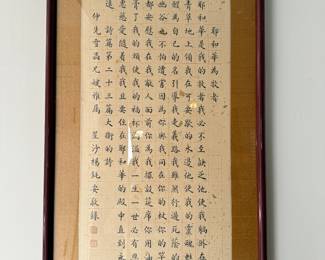 耶和華為牧者
耶和華是我的牧者我必不至缺乏他使我躺卧在
青草地上領我在可安歇的水邊他使我的靈魂甦
醒為自己的名引導我走義路我雖然行過死蔭的
幽谷也不怕遭害因為你與我同在你的杖你的竿
都安慰我在我敵人面前你為我擺設筵席你用油
膏了我的頭使我的福杯滿溢我一生一世必有恩
惠慈愛隨着我我且要住在耶和華的殿中直到永
遠 詩篇第二十三篇大衛的詩
仲先雪晶兄嫂雅屬 星沙楊純安敬錄